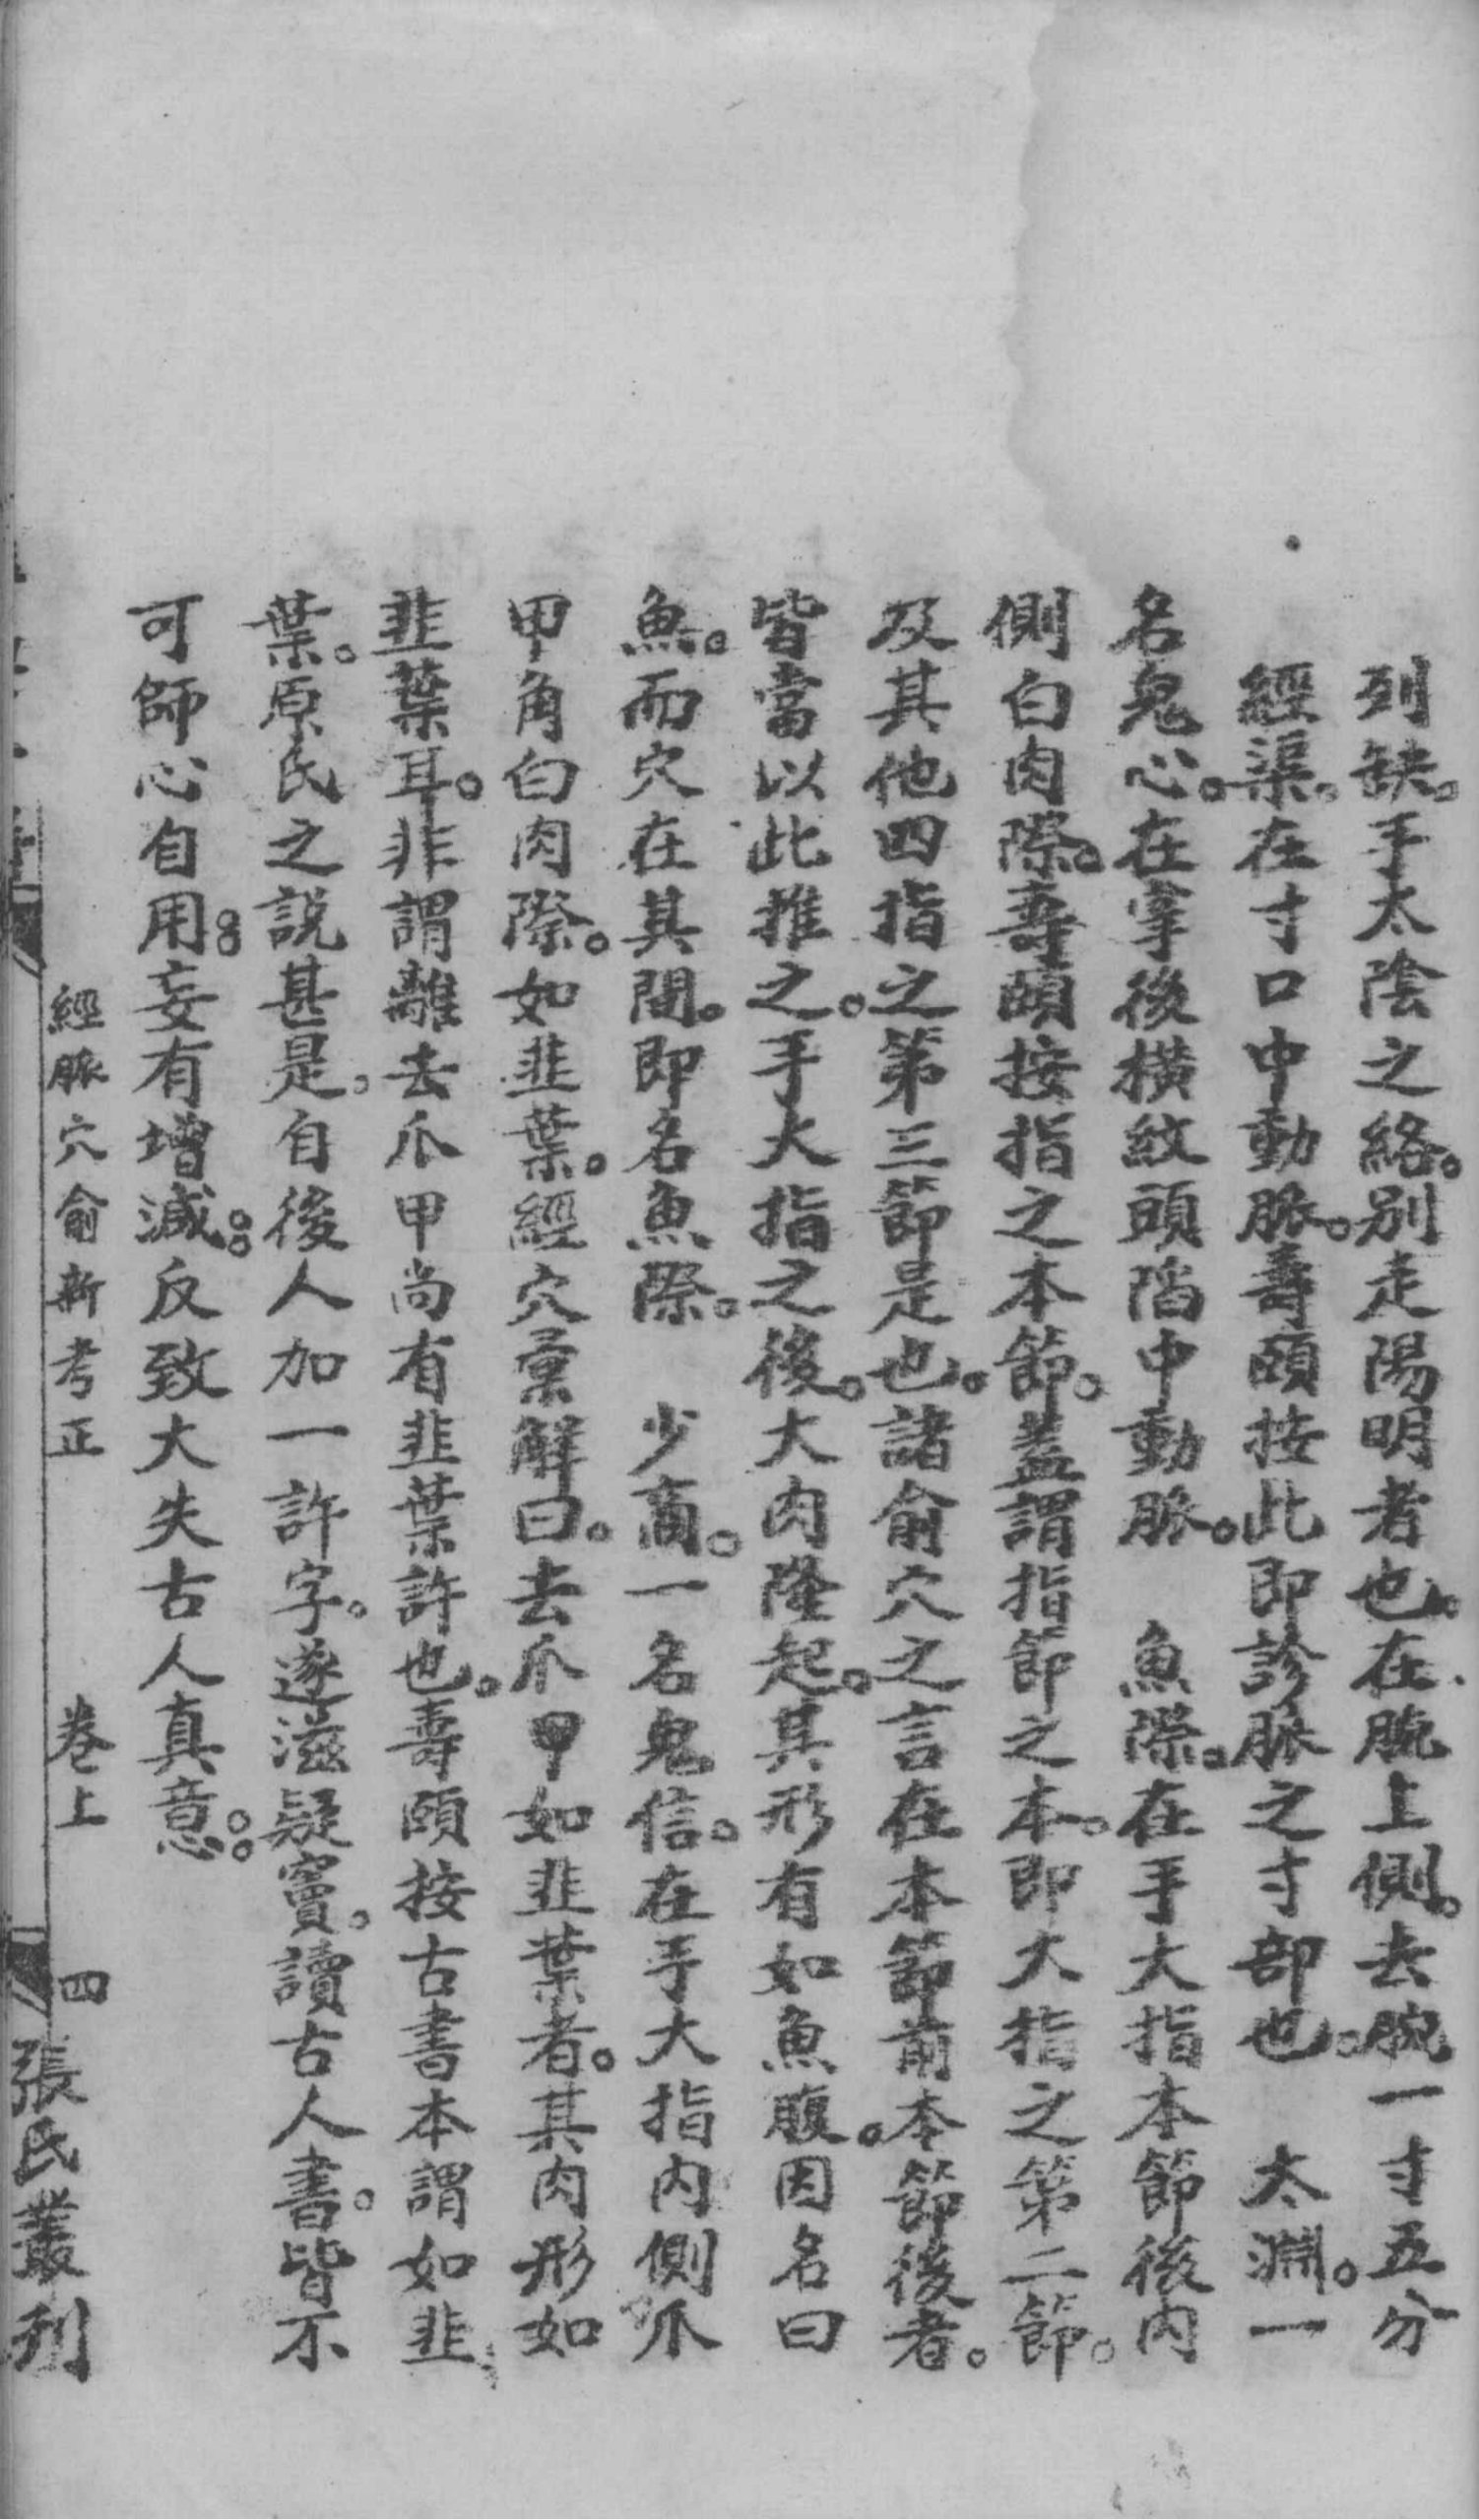 列缺。手太陰之絡。別走陽明者也。在腕上側。去腕一寸五分
經渠。在寸口中動脈。壽頤按此即診脈之寸部也。　太淵。一
名鬼心。在掌後橫紋頭陷中動脈。　魚際。在手大指本節後內
側白肉際。壽頤按指之本節。蓋謂指節之本。即大指之第二節。
及其他四指之第三節是也。諸俞穴之言在本節前本節後者。
皆當以此推之。手大指之後。大肉隆起。其形有如魚腹。因名曰
魚。而穴在其間。即名魚際。　少商。一名鬼信。在手大指內側爪
甲角白肉際。如韭葉。經穴彙解曰。去爪甲如韭葉者。其肉形如
韭葉耳。非謂離去爪甲尚有韭葉許也。壽頤按古書本謂如韭
葉。原氏之說甚是。自後人加一許字。遂滋疑竇。讀古人書。皆不
可師心自用。妄有增減。反致大失古人真意。
經脈穴俞新考正　卷上　四　張氏叢刊